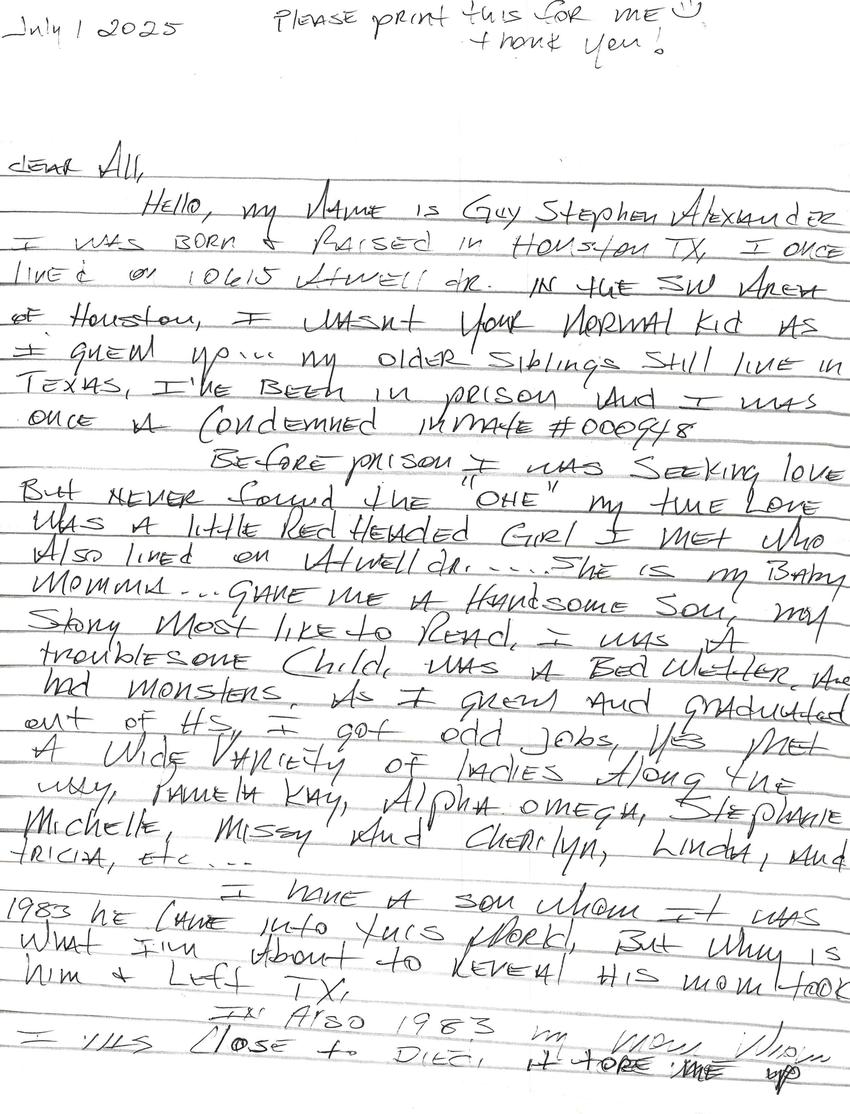 July 1 2025 PLEASE print this for ME
thank you!
dEAR All,
Hello, my NAME is Guy Stephen Alexander
I WAS BORN & RAISED in Houston TX, I ONCE
lived on 10615 Atwell dr. IN the SW AREA
of Houston, I WASNt YOUR NORMAL Kid AS
I grew up... my OLDER Siblings Still live in
TEXAS, I'VE BEEN in prison And I WAS
ONCE A Condemned inmate #000948
BEFORE prison I WAS SEEKING love
But NEVER found the "ONE" my true LOVE
WAS A little Red HEADED Girl I MET who
Also lived on Atwell dr. ..... She is my BABy
MOMMA... GAVE ME A HANDSOME Son, my
Story Most likE to READ, I WAS A
troublesome Child, WAS A BED WETTER,
had monsters. As I grew And graduated
out of HS, I got odd jobs, YES MET
A Wide VARIETy OF lADIES Along the
way, PAMELA KAY, Alpha OMEGA, STEPhANIE
Michelle, Missy And CheRilyn, LindA, And
tRICIA, Etc ....
I HAVE A son whom It WAS
1983 he CAME into this World, But why is
What I'm About to REVEAl HIS mom took
him & Left TX,
In Also 1983 my Mom Whom
I WAS Close to DIED, it tORE ME up